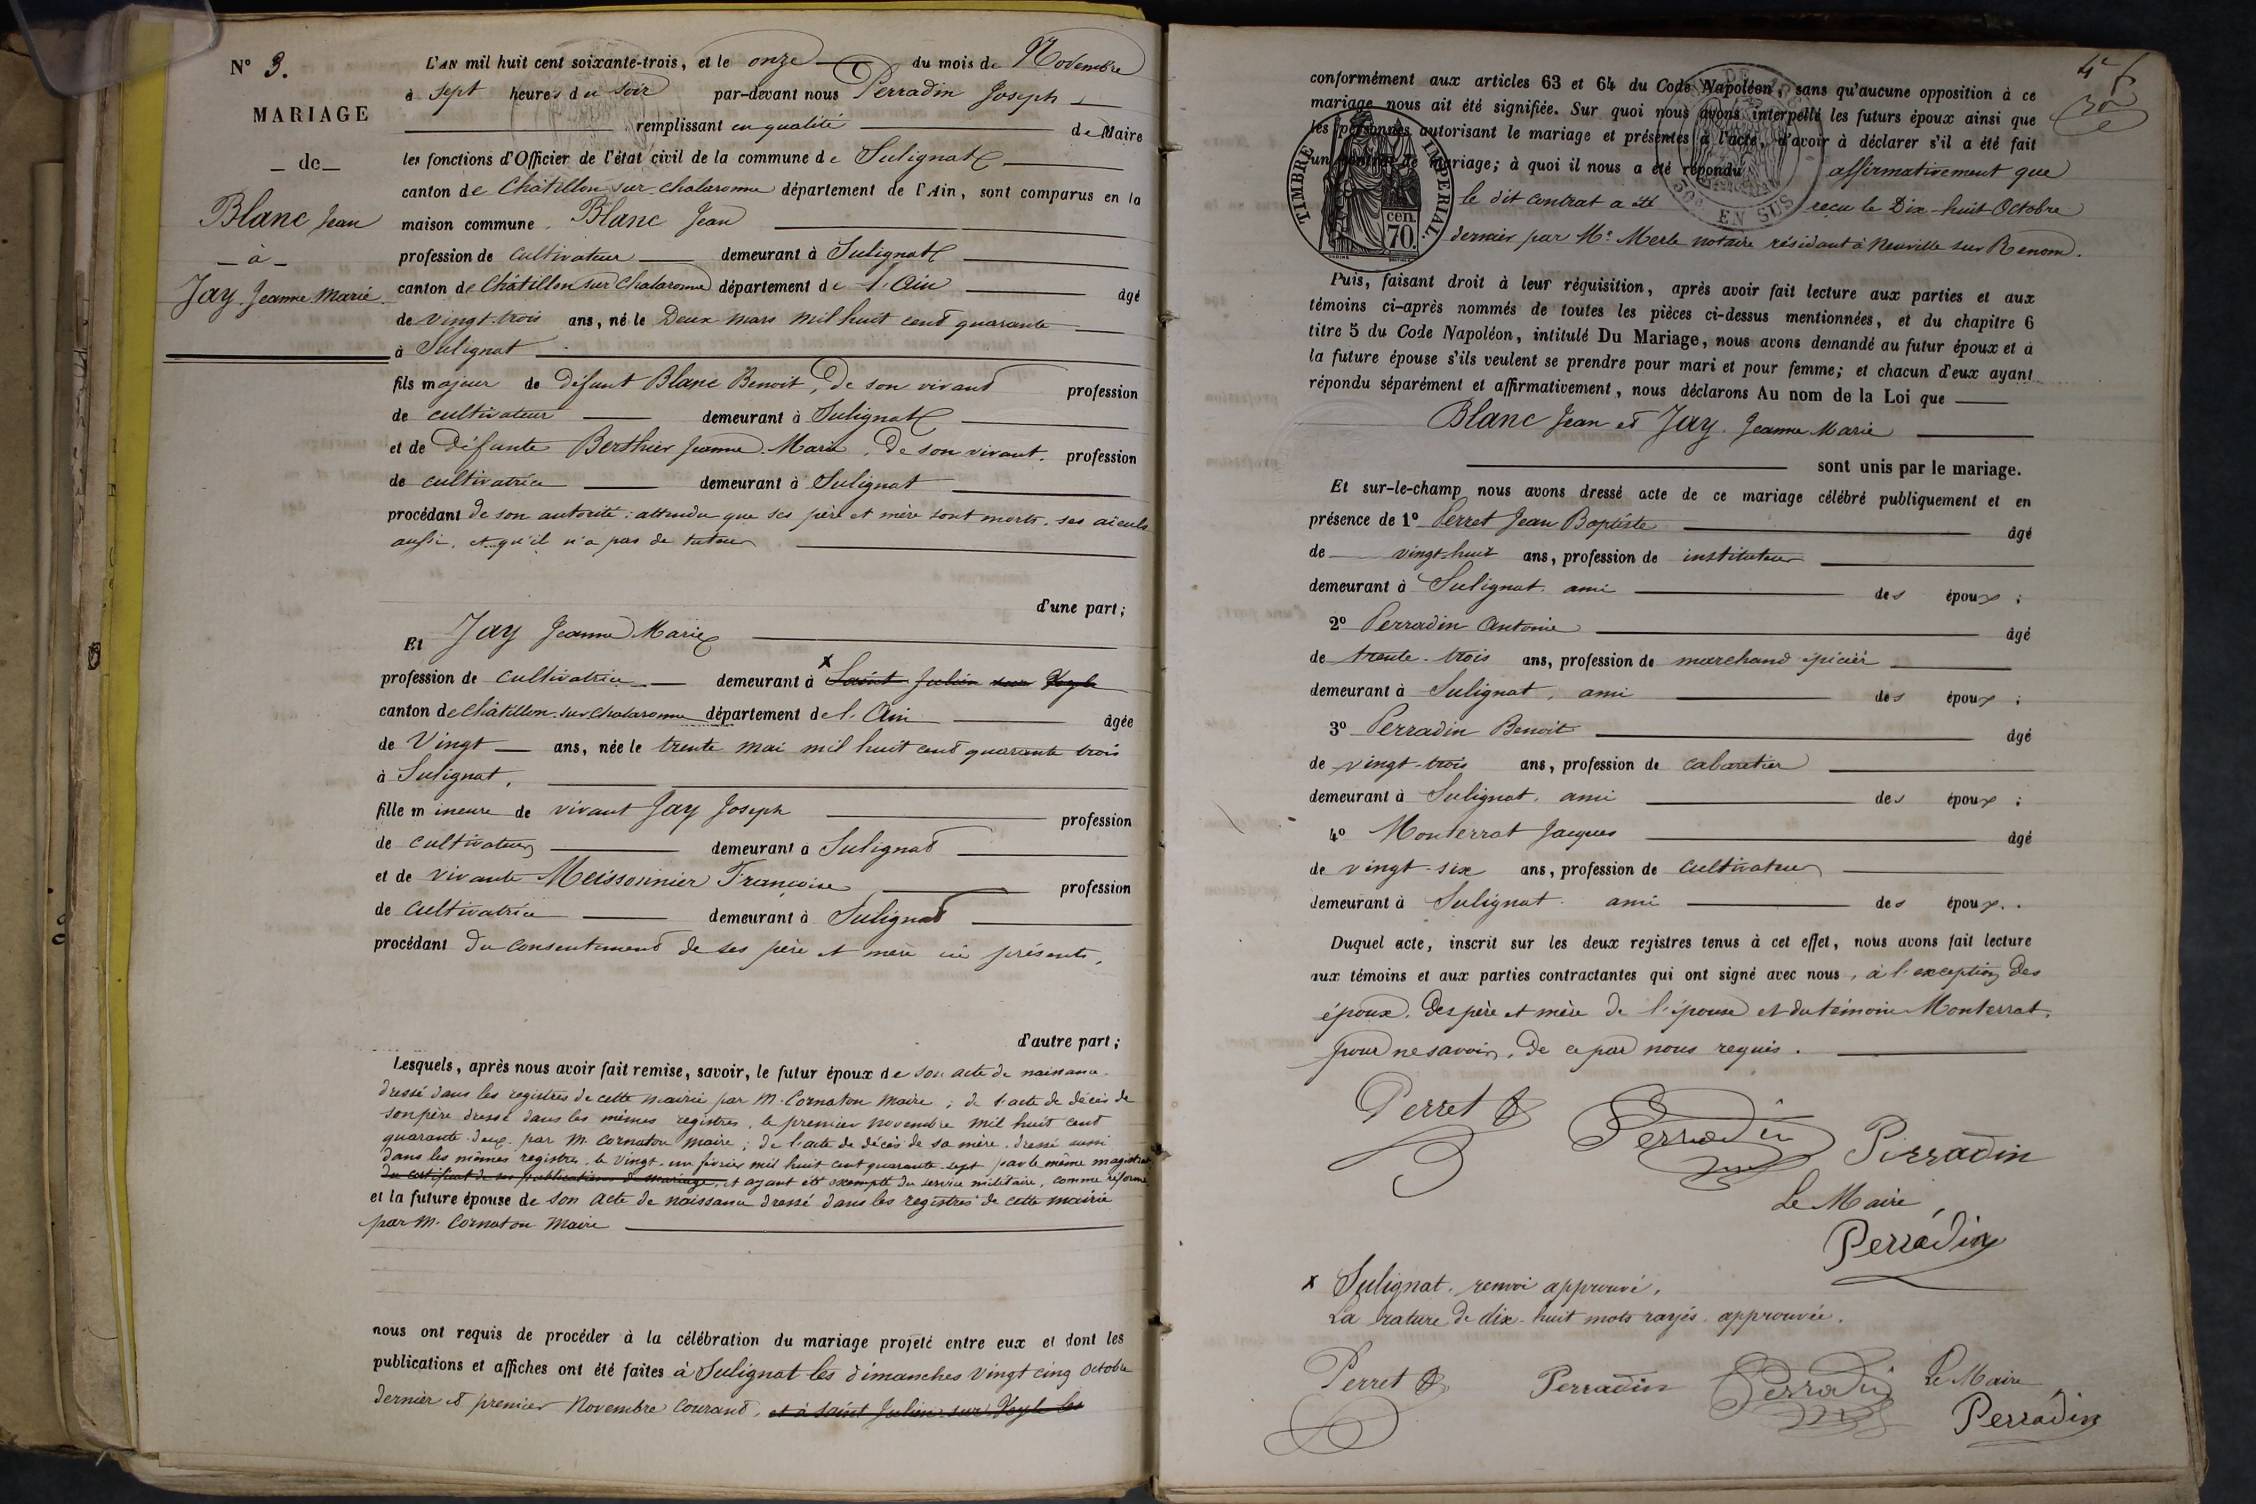 N° 3.
MARIAGE
de
Blanc Jean
à
Jay Jeanne Marie
L'AN mil huit cent soixante-trois, et le onze du mois de Novembre
à sept heures du soir par-devant nous Perradin Joseph
remplissant en qualité de Maire
les fonctions d'Officier de l'état civil de la commune de Sulignat
canton de Châtillon sur Chalaronne département de l'Ain, sont comparus en la
maison commune. Blanc Jean
profession de cultivateur demeurant à Sulignat
canton de Châtillon sur Chalaronne département de l'Ain âgé
de vingt-trois ans, né le Deux mars mil huit cent quarante
à Sulignat
fils majeur de défunt Blanc Benoit, De son vivant profession
de cultivateur demeurant à Sulignat
et de Défunte Berthier Jeanne Marie, De son vivant profession
de cultivatrice demeurant à Sulignat
procédant de son autorité : attendu que ses père et mère sont morts, ses aïeuls
aussi, et qu'il n'a pas de tuteur
d'une part ;
Et Jay Jeanne Marie
profession de cultivatrice demeurant à x Saint Julien sur Veyle
canton de Châtillon-sur-Chalaronne département de l'Ain âgée
de Vingt ans, née le trente mai mil huit cent quarante trois
à Sulignat,
fille mineure de vivant Jay Joseph profession
de cultivateur demeurant à Sulignat
et de vivante Meissonnier Françoise profession
de cultivatrice demeurant à Sulignat
procédant du consentement de ses père et mère ici présents,
d'autre part ;
Lesquels, après nous avoir fait remise, savoir, le futur époux de son acte de naissance
dressé dans les registres de cette mairie par M. Cornaton Maire ; de l'acte de décès de
son père dressé dans les mêmes registres, le premier novembre mil huit cent
quarante-deux par M. Cornaton Maire ; de l'acte de décès de sa mère, dressé aussi
dans les mêmes registres, le vingt-un février mil huit cent quarante-sept par le même magistrat
du certificat de ses publications de mariage, et ayant été exempté du service militaire, comme réformé
et la future épouse de son acte de naissance dressé dans les registres de cette mairie
par M. Cornaton Maire
nous ont requis de procéder à la célébration du mariage projeté entre eux et dont les
publications et affiches ont été faites à Sulignat les dimanches vingt cinq octobre
dernier et premier Novembre courant, et à Saint Julien sur Veyle les
conformément aux articles 63 et 64 du Code Napoléon, sans qu'aucune opposition à ce
mariage nous ait été signifiée. Sur quoi nous avons interpellé les futurs époux ainsi que
les personnes autorisant le mariage et présentes à l'acte, d'avoir à déclarer s'il a été fait
un contrat de mariage ; à quoi il nous a été répondu affirmativement que
le dit contrat a été reçu le Dix-huit Octobre
dernier par Me. Merle notaire résidant à Neuville sur Renom.
TIMBRE IMPERIAL.
cen. 70.
50c EN SUS
Puis, faisant droit à leur réquisition, après avoir fait lecture aux parties et aux
témoins ci-après nommés de toutes les pièces ci-dessus mentionnées, et du chapitre 6
titre 5 du Code Napoléon, intitulé Du Mariage, nous avons demandé au futur époux et à
la future épouse s'ils veulent se prendre pour mari et pour femme ; et chacun d'eux ayant
répondu séparément et affirmativement, nous déclarons Au nom de la Loi que
Blanc Jean et Jay Jeanne Marie
sont unis par le mariage.
Et sur-le-champ nous avons dressé acte de ce mariage célébré publiquement et en
présence de 1° Perret Jean Baptiste âgé
de vingt-huit ans, profession de instituteur
demeurant à Sulignat, ami des époux ;
2° Perradin Antoine âgé
de trente-trois ans, profession de marchand épicier
demeurant à Sulignat, ami des époux ;
3° Perradin Benoit âgé
de vingt-trois ans, profession de cabaretier
demeurant à Sulignat, ami des époux ;
4° Monterrat Jacques âgé
de vingt-six ans, profession de cultivateur
demeurant à Sulignat ami des époux.
Duquel acte, inscrit sur les deux registres tenus à cet effet, nous avons fait lecture
aux témoins et aux parties contractantes qui ont signé avec nous, à l'exception des
époux, Des père et mère de l'épouse et du témoin Monterrat,
pour ne savoir, De ce par nous requis.
Perret Perradin Perradin
Le Maire
Perradin
x Sulignat, renvoi approuvé,
La rature de dix-huit mots rayés approuvée.
Perret Perradin Perradin Le Maire
Perradin